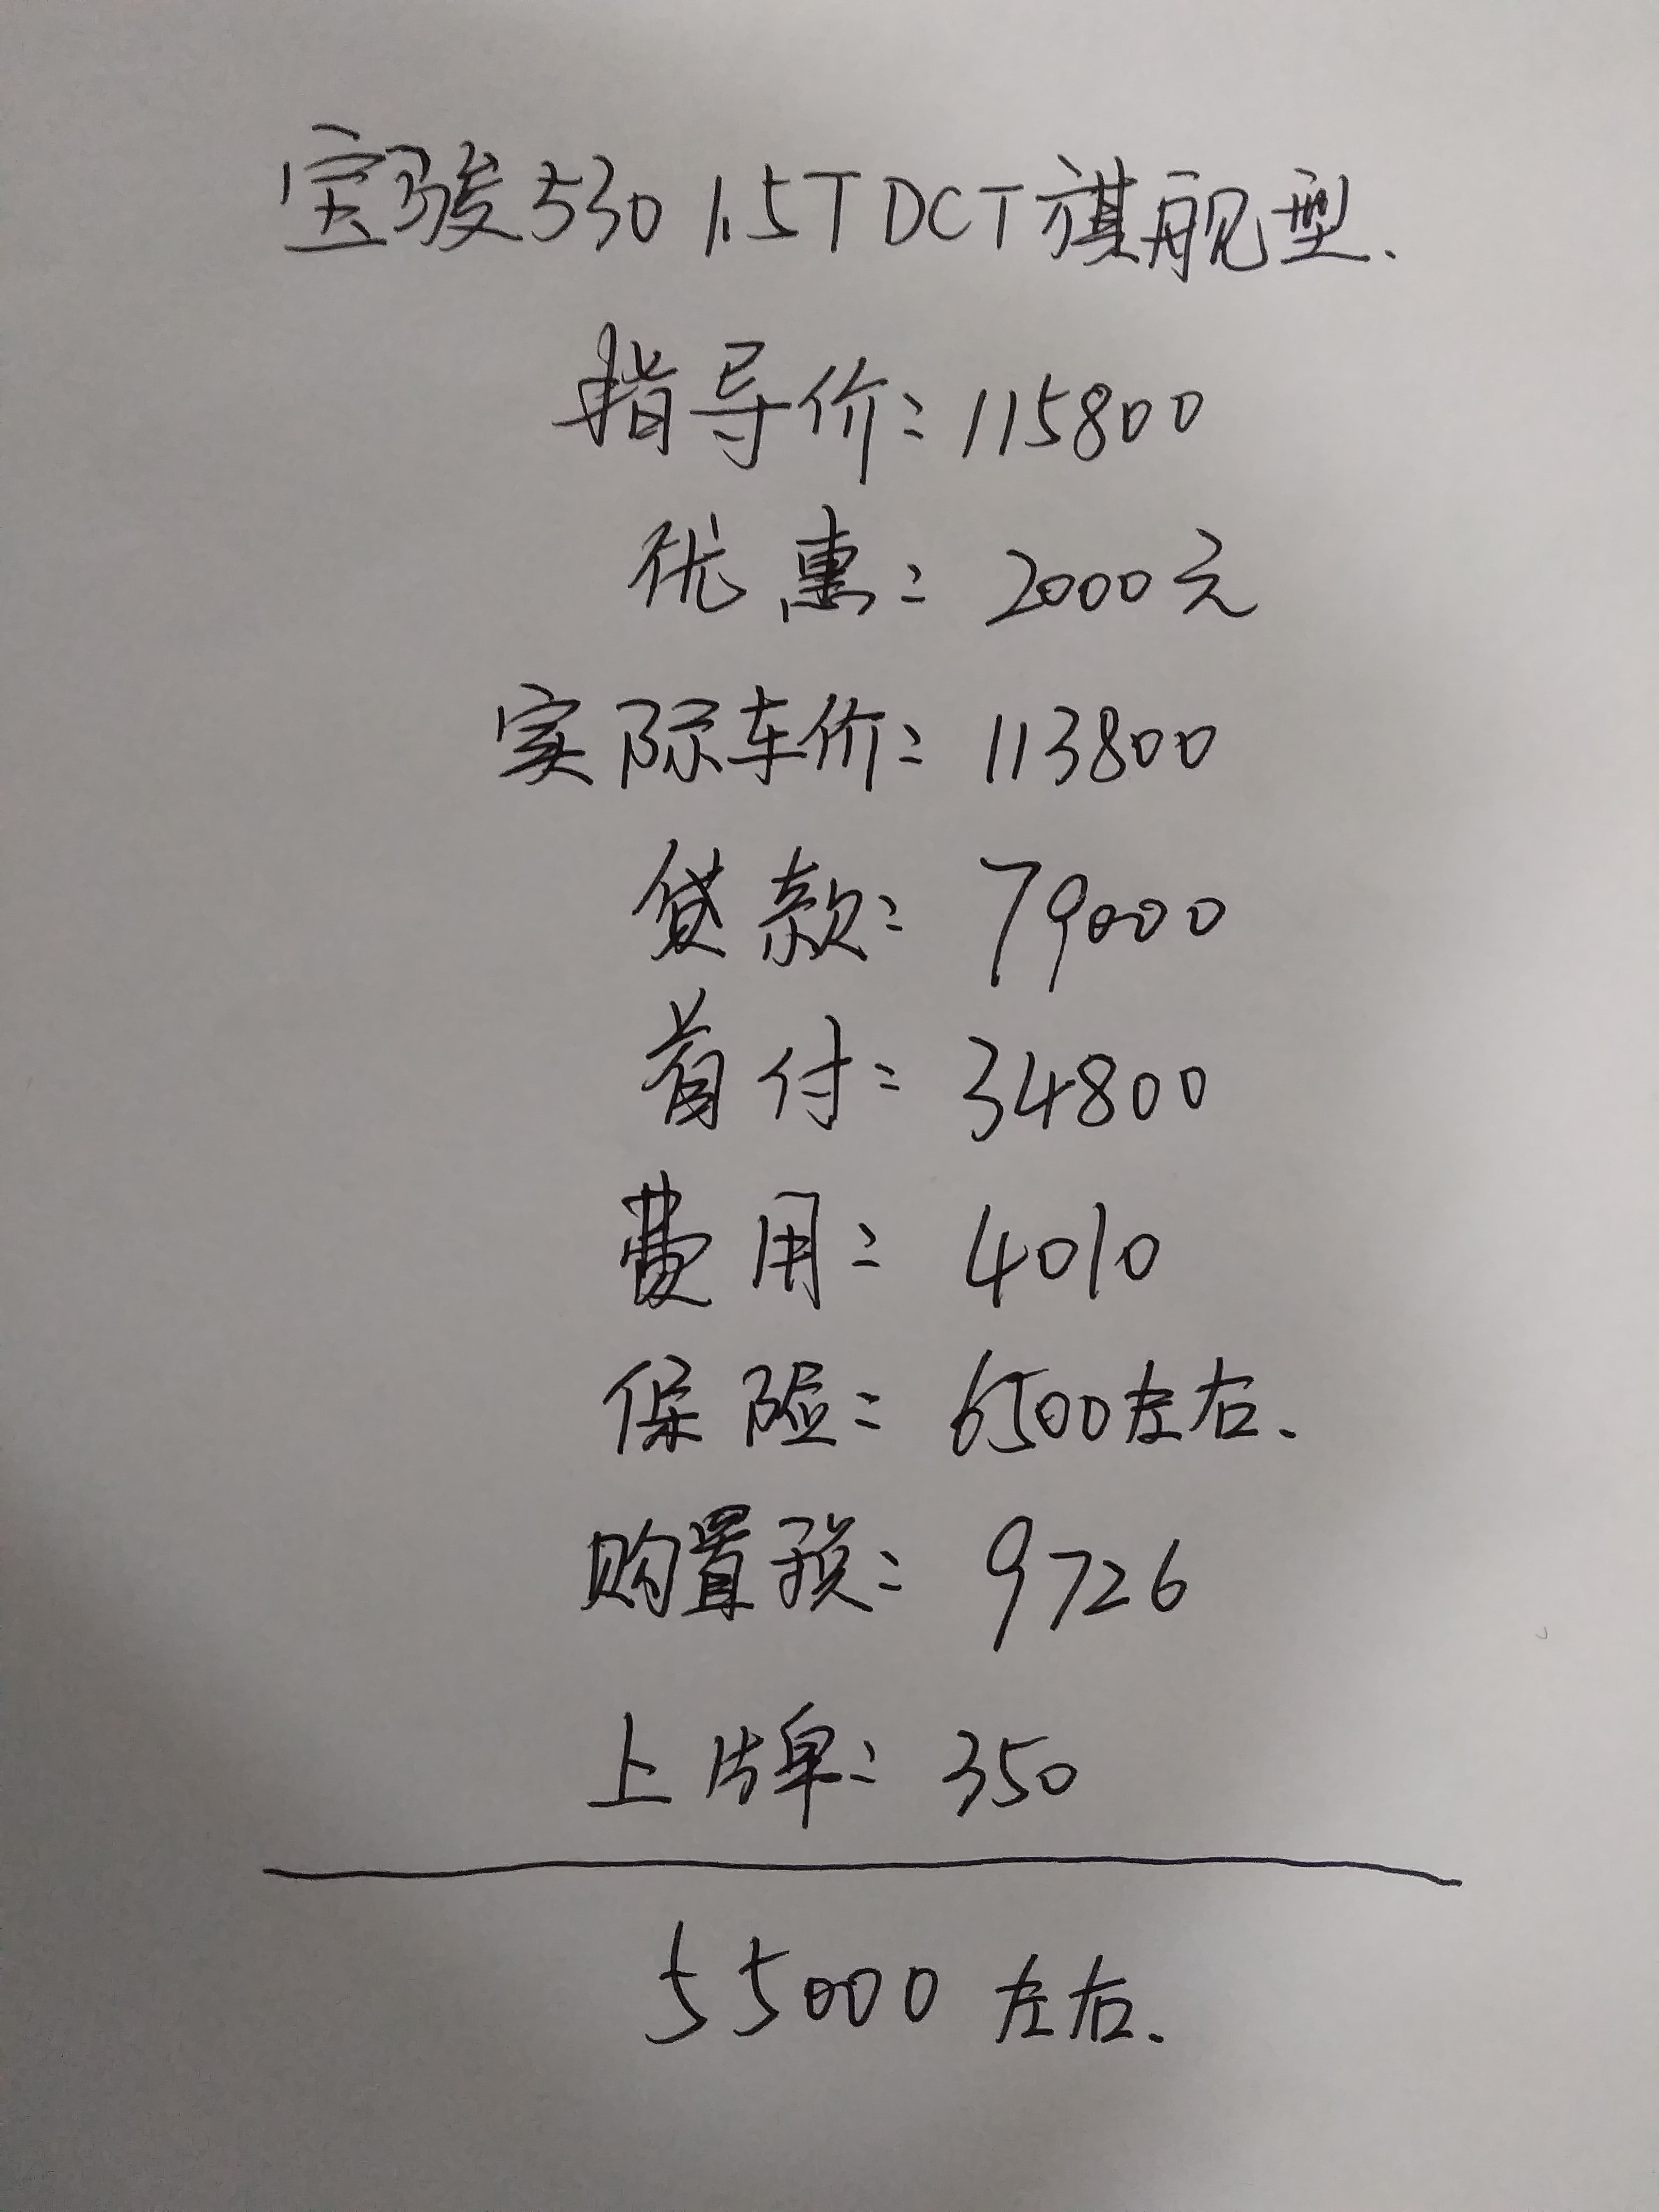 宝骏530 1.5T DCT旗舰型、
指导价：115800
优惠：2000元
实际车价：113800
贷款：79000
首付：34800
费用：4010
保险：6500左右、
购置税：9726
上牌：350
55000左右、